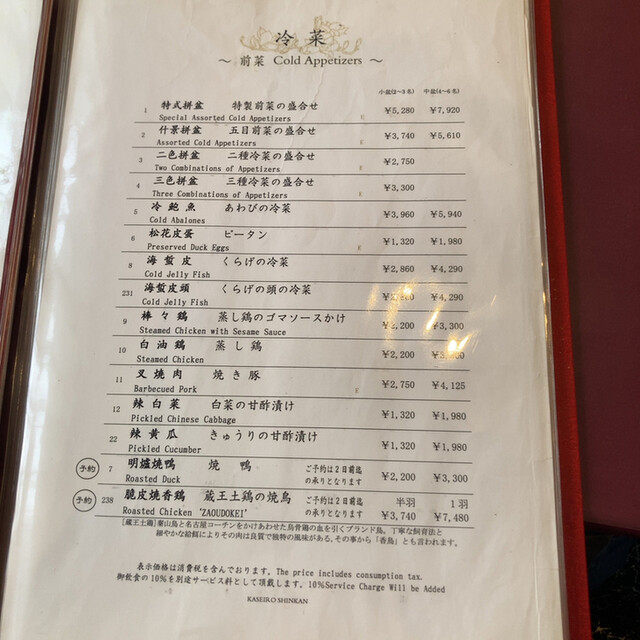 冷菜
～ 前菜 Cold Appetizers ～
小盆(2～3名) 中盆(4～6名)
1 特式拼盆 特製前菜の盛合せ ¥5,280 ¥7,920
Special Assorted Cold Appetizers
2 什景拼盆 五目前菜の盛合せ ¥3,740 ¥5,610
Assorted Cold Appetizers
3 二色拼盆 二種冷菜の盛合せ ¥2,750
Two Combinations of Appetizers
4 三色拼盆 三種冷菜の盛合せ ¥3,300
Three Combinations of Appetizers
5 冷鮑魚 あわびの冷菜 ¥3,960 ¥5,940
Cold Abalones
6 松花皮蛋 ピータン ¥1,320 ¥1,980
Preserved Duck Eggs
8 海蜇皮 くらげの冷菜 ¥2,860 ¥4,290
Cold Jelly Fish
231 海蜇皮頭 くらげの頭の冷菜 ¥4,290
Cold Jelly Fish
9 棒々鶏 蒸し鶏のゴマソースかけ ¥2,200 ¥3,300
Steamed Chicken with Sesame Sauce
10 白油鶏 蒸し鶏 ¥2,200
Steamed Chicken
11 叉焼肉 焼き豚 ¥2,750 ¥4,125
Barbecued Pork
12 辣白菜 白菜の甘酢漬け ¥1,320 ¥1,980
Pickled Chinese Cabbage
22 辣黄瓜 きゅうりの甘酢漬け ¥1,320 ¥1,980
Pickled Cucumber
予約 7 明爐焼鴨 焼鴨 ご予約は2日前迄 ¥2,200 ¥3,300
Roasted Duck の承りとなります
予約 238 脆皮焼香鶏 蔵王土鶏の焼鳥 ご予約は2日前迄 半羽 1羽
Roasted Chicken 'ZAOUDOKEI' の承りとなります ¥3,740 ¥7,480
[蔵王土鶏]東山鳥と名古屋コーチンをかけあわせた烏骨鶏の血を引くブランド鳥。丁寧な飼育法と
細やかな給餌によりその肉は良質で独特の風味がある。その事から「香鳥」とも言われます。
表示価格は消費税を含んでおります。The price includes consumption tax.
御飲食の10％を別途サービス料として頂戴します。10%Service Charge Will be Added
KASEIRO SHINKAN